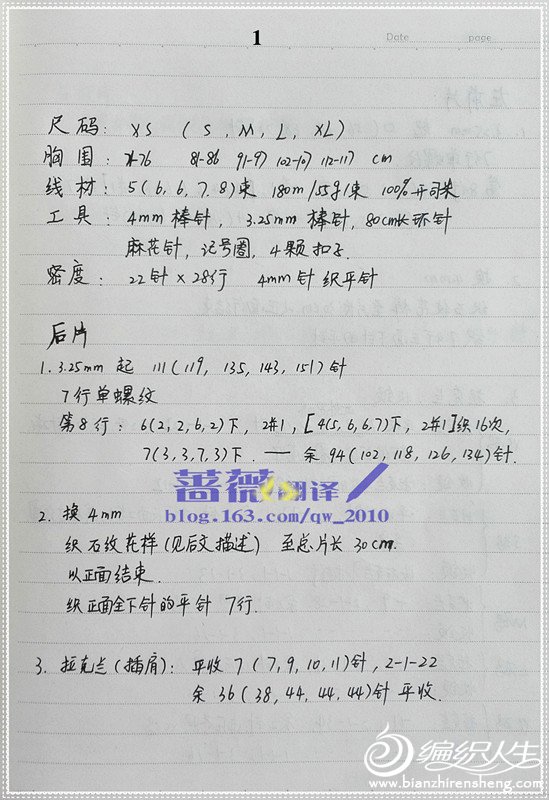 1
Date
page
尺码: XS (S, M, L, XL)
胸围: 71-76 81-86 91-97 102-107 112-117 cm
线材: 5(6,6,7,8)束 180m/55g/束 100%开司米
工具: 4mm棒针, 3.25mm棒针, 80cm长环针
麻花针, 记号圈, 4颗扣子.
密度: 22针×28行 4mm针织平针
后片
1. 3.25mm 起 111(119, 135, 143, 151)针
7行单螺纹
第8行: 6(2,2,6,2)下, 2并1, [4(5,6,6,7)下, 2并1]织16次,
7(3,3,7,3)下. — 余94(102,118,126,134)针.
蔷薇翻译
blog.163.com/qw_2010
2. 换4mm
织石纹花样(见后文描述) 至总片长30cm.
以正面结束.
织正面全下针的平针 7行.
3. 拉克兰(插肩): 平收7(7,9,10,11)针, 2-1-22
余36(38,44,44,44)针 平收.
编织人生
www.bianzhirensheng.com